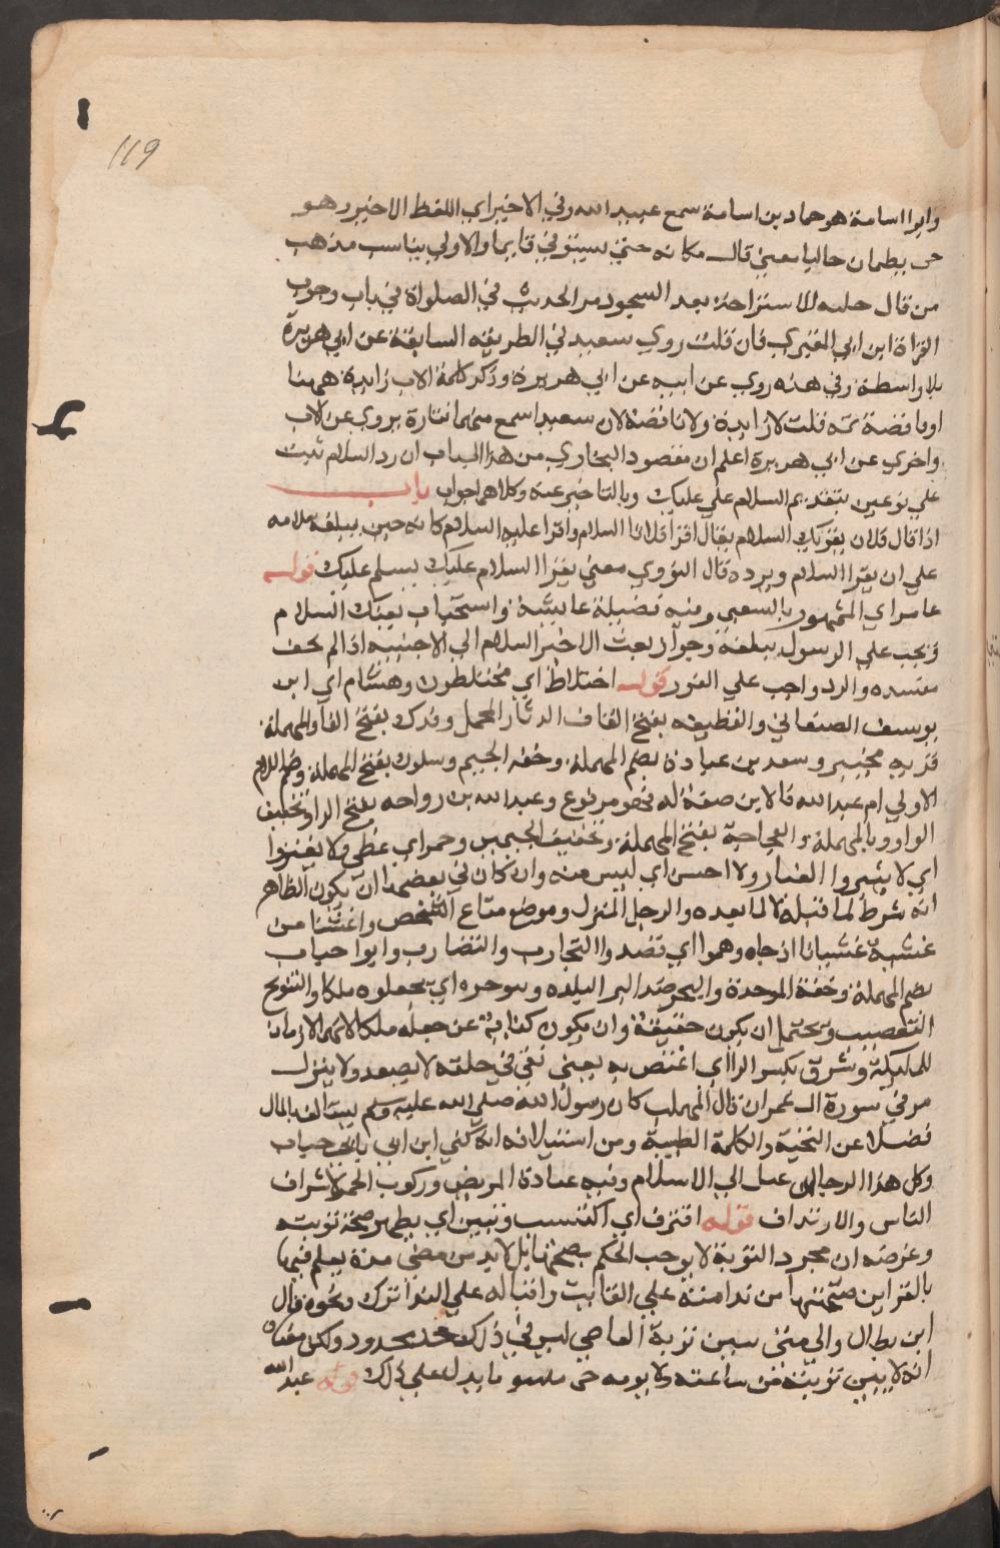 119
وابوا اسامة هو حماد بن اسامة سمع عبيد الله وفي الاخير اي اللفظ الاخير وهو
حتى يطمئن جالسا يعني قال مكانه حتي تستوي قايما والاولي يناسب مذهب
من قال جلسه للاستراحة بعد السجود مر الحديث في الصلواة في باب وجوب
القراة ابن ابي المقبري فان قلت روي سعيد في الطريقه السابقة عن ابي هريرة
بلا واسطة وفي هذه روي عن ابيه عن ابي هريرة وذكر كلمة الاب زايدة ههنا
او ناقصة ثمه قلت لا زايدة ولا ناقصة لان سعيد اسمع منهما فتارة يروي عن الاب
واخري عن ابي هريرة اعلم ان مقصود البخاري من هذا الباب ان رد السلام ثبت
علي نوعين بتقديم السلام علي عليك وبالتاخير عنه وكلاهما جواب باب
اذا قال فلان يقريك السلام يقال اقرا فلانا السلام واقرا عليه السلام كانه حين يبلغه سلامه
علي ان يقرا السلام ويرده قال النووي معني يقرا السلام عليك يسلم عليك قوله
عامر اي المشهور بالشعبي وفيه فضيلة عايشة واستحباب بعثك السلام
ويجب علي الرسول يبلغه وجواز بعث الاخبر السلام الي الاجنبيه اذا لم يخف
مفسده والرد واجب علي الفور قوله اختلاط اي مختلطون وهشام اي ابن
يوسف الصنعاني والقطيفه بفتح القاف الدثار المخمل وفدك بفتح الفا والمهملة
قريه بخيبر وسعد بن عبادة بضم المهملة وخفه الجيم وسلول بفتح المهملة وضم اللام
الاولي ام عبد الله فالابن صفة له فهو مرفوع وعبد الله بن رواحه بفتح الرا وتخفيف
الواو وبالمهملة والعجاجة بفتح المهملة وتخفيف الجيمين وخمر اي غطي ولا تغبروا
اي لا تثيروا الغبار ولا احسن اي ليس منه وان كان في بعضها ان يكون الظاهر
انه شرط لما قبله لا لما بعده والرحل المنزل وموضع متاع الشخص واغشنا من
غشيه غشيانا اذ جاه وهموا اي قصدوا التحارب والتضارب وابوا حباب
بضم المهملة وخفة الموحدة والبحر ضد البر البلده ويتوجوه اي يجعلوه ملكا والتتويج
التعصيب ويحتمل ان يكون حقيقة وان يكون كناية عن جعله ملكا لانهما لازمان
للملكية وشرق بكسر الرا اي اغتص به يعني بقي في حلقه لا يصعد ولا ينزل
مر في سورة ال عمران قال المهلب كان رسول الله صلي الله عليه وسلم يستالف بالمال
فضلا عن التحية والكلمة الطيبة ومن استئلافه انه كني ابن ابي بابي حباب
وكل هذا الرجا ان عسل الي الاسلام وفيه عيادة المريض وركوب الحمر لاشراف
الناس والارتداف قوله اقترف اي اكتسب وتبين اي يظهر صحة توبته
وغرضه ان مجرد التوبة لا يوجب الحكم بصحتها بل لابد من مضي مدة يعلم فيها
بالقراين صحتها من ندامته علي الفايت واقباله علي التدارك ونحوه قال
ابن بطال والي متى تبين توبة العاصي ليس في ذلك حد محدود ولكن معناه
انه لا يتبين توبته من ساعته ولا يومه حتى يمر ما يدل علي ذلك قوله عبد الله